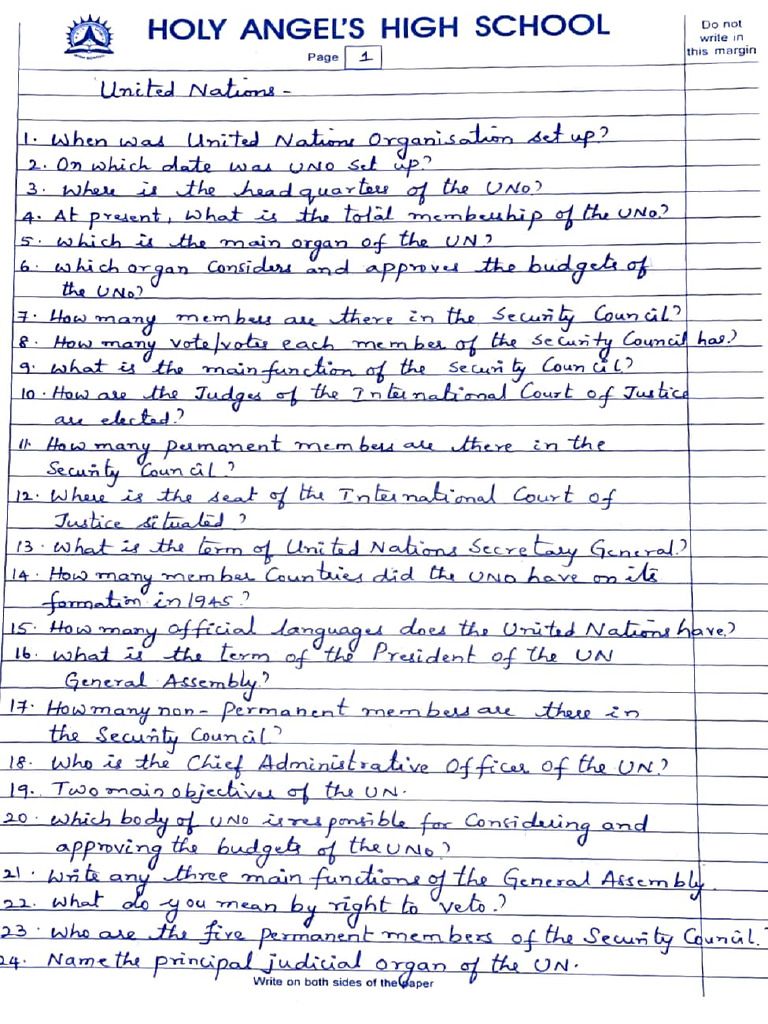 HOLY ANGEL'S HIGH SCHOOL
Page 1
Do not
write in
this margin
United Nations -
1. When was United Nations Organisation set up?
2. On which date was UNO set up?
3. Where is the headquarters of the UNO?
4. At present, what is the total membership of the UNO?
5. Which is the main organ of the UN?
6. Which organ considers and approves the budgets of
the UNO?
7. How many members are there in the Security Council?
8. How many vote/votes each member of the Security Council has?
9. What is the main function of the Security Council?
10. How are the Judges of the International Court of Justice
are elected?
11. How many permanent members are there in the
Security Council?
12. Where is the seat of the International Court of
Justice situated?
13. What is the term of United Nations Secretary General?
14. How many member Countries did the UNO have on its
formation in 1945?
15. How many official languages does the United Nations have?
16. What is the term of the President of the UN
General Assembly?
17. How many non-permanent members are there in
the Security Council?
18. Who is the Chief Administrative Officer of the UN?
19. Two main objectives of the UN.
20. Which body of UNO is responsible for Considering and
approving the budgets of the UNO?
21. Write any three main functions of the General Assembly.
22. What do you mean by right to veto?
23. Who are the five permanent members of the Security Council?
24. Name the principal judicial organ of the UN.
Write on both sides of the paper